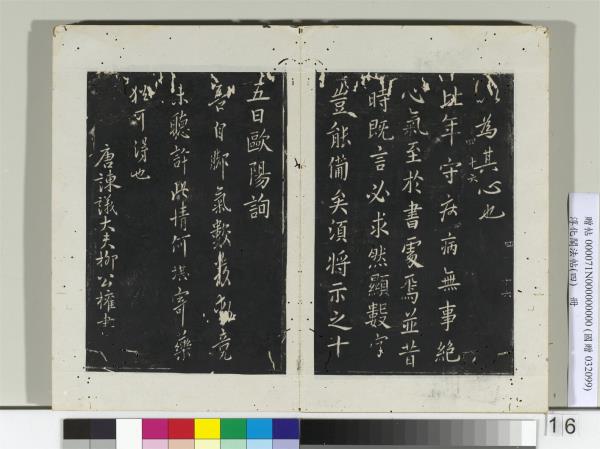 以為其心也
四 十六
比年守疾病無事絕
心氣至於書處焉並昔
時既言必求然顯數字
豈能備矣須將示之十
五日歐陽詢
善自腳氣數發動竟
未聽許此情何堪寄藥
猶可得也
唐諫議大夫柳公權書
贈帖 000071N000000000 (國贈 032099)
淳化閣法帖(四) 冊
16